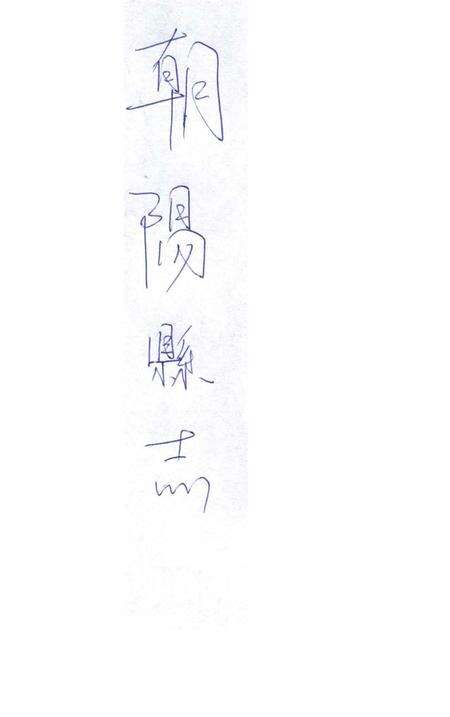 朝陽縣志